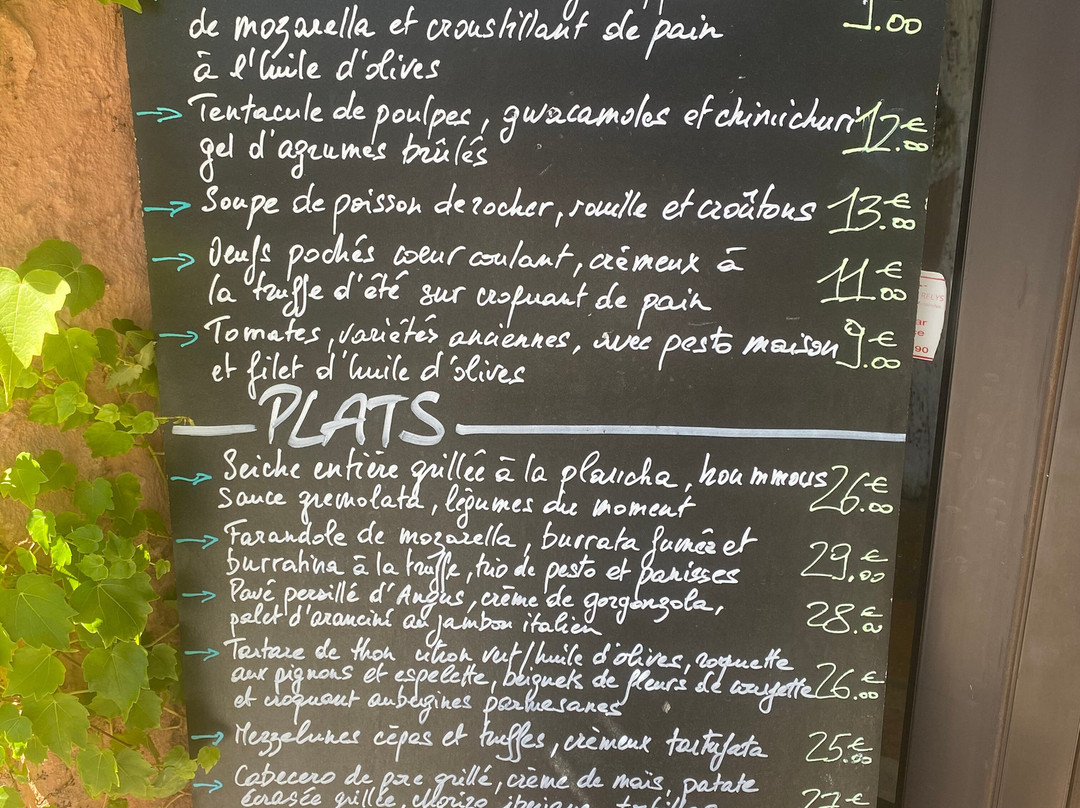 de mozarella et croustillant de pain
.00
à l'huile d'olives
→ Tentacule de poulpes, gwacamoles et chimichuri 12.00€
gel d'agrumes brûlés
→ Soupe de poisson de rocher, rouille et croûtons 13.00€
→ Oeufs pochés coeur coulant, crèmeux à
la truffe d'été sur croquant de pain 11.00€
→ Tomates, variétés anciennes, avec pesto maison 9.00€
et filet d'huile d'olives
PLATS
→ Seiche entière grillée à la plancha, hoummous 26.00€
sauce gremolata, légumes du moment
→ Farandole de mozarella, burrata fumée et
burratina à la truffe, trio de pesto et panisses 29.00€
→ Pavé persillé d'Angus, crème de gorgonzola, 28.00€
palet d'arancini au jambon italien
→ Tartare de thon citron vert/huile d'olives, roquette
aux pignons et espelette, beignets de fleurs de courgette 26.00€
et croquant aubergines parmesanes
→ Mezzelunes cèpes et truffes, crèmeux tartufata 25.00€
→ Cabecero de porc grillé, crème de maïs, patate
écrasée grillée, chorizo iberique,